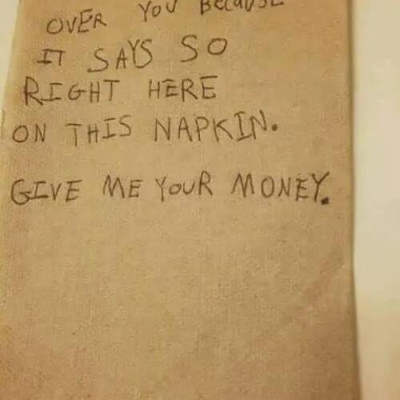 OVER YOU BECAUSE
IT SAYS SO
RIGHT HERE
ON THIS NAPKIN.
GIVE ME YOUR MONEY.